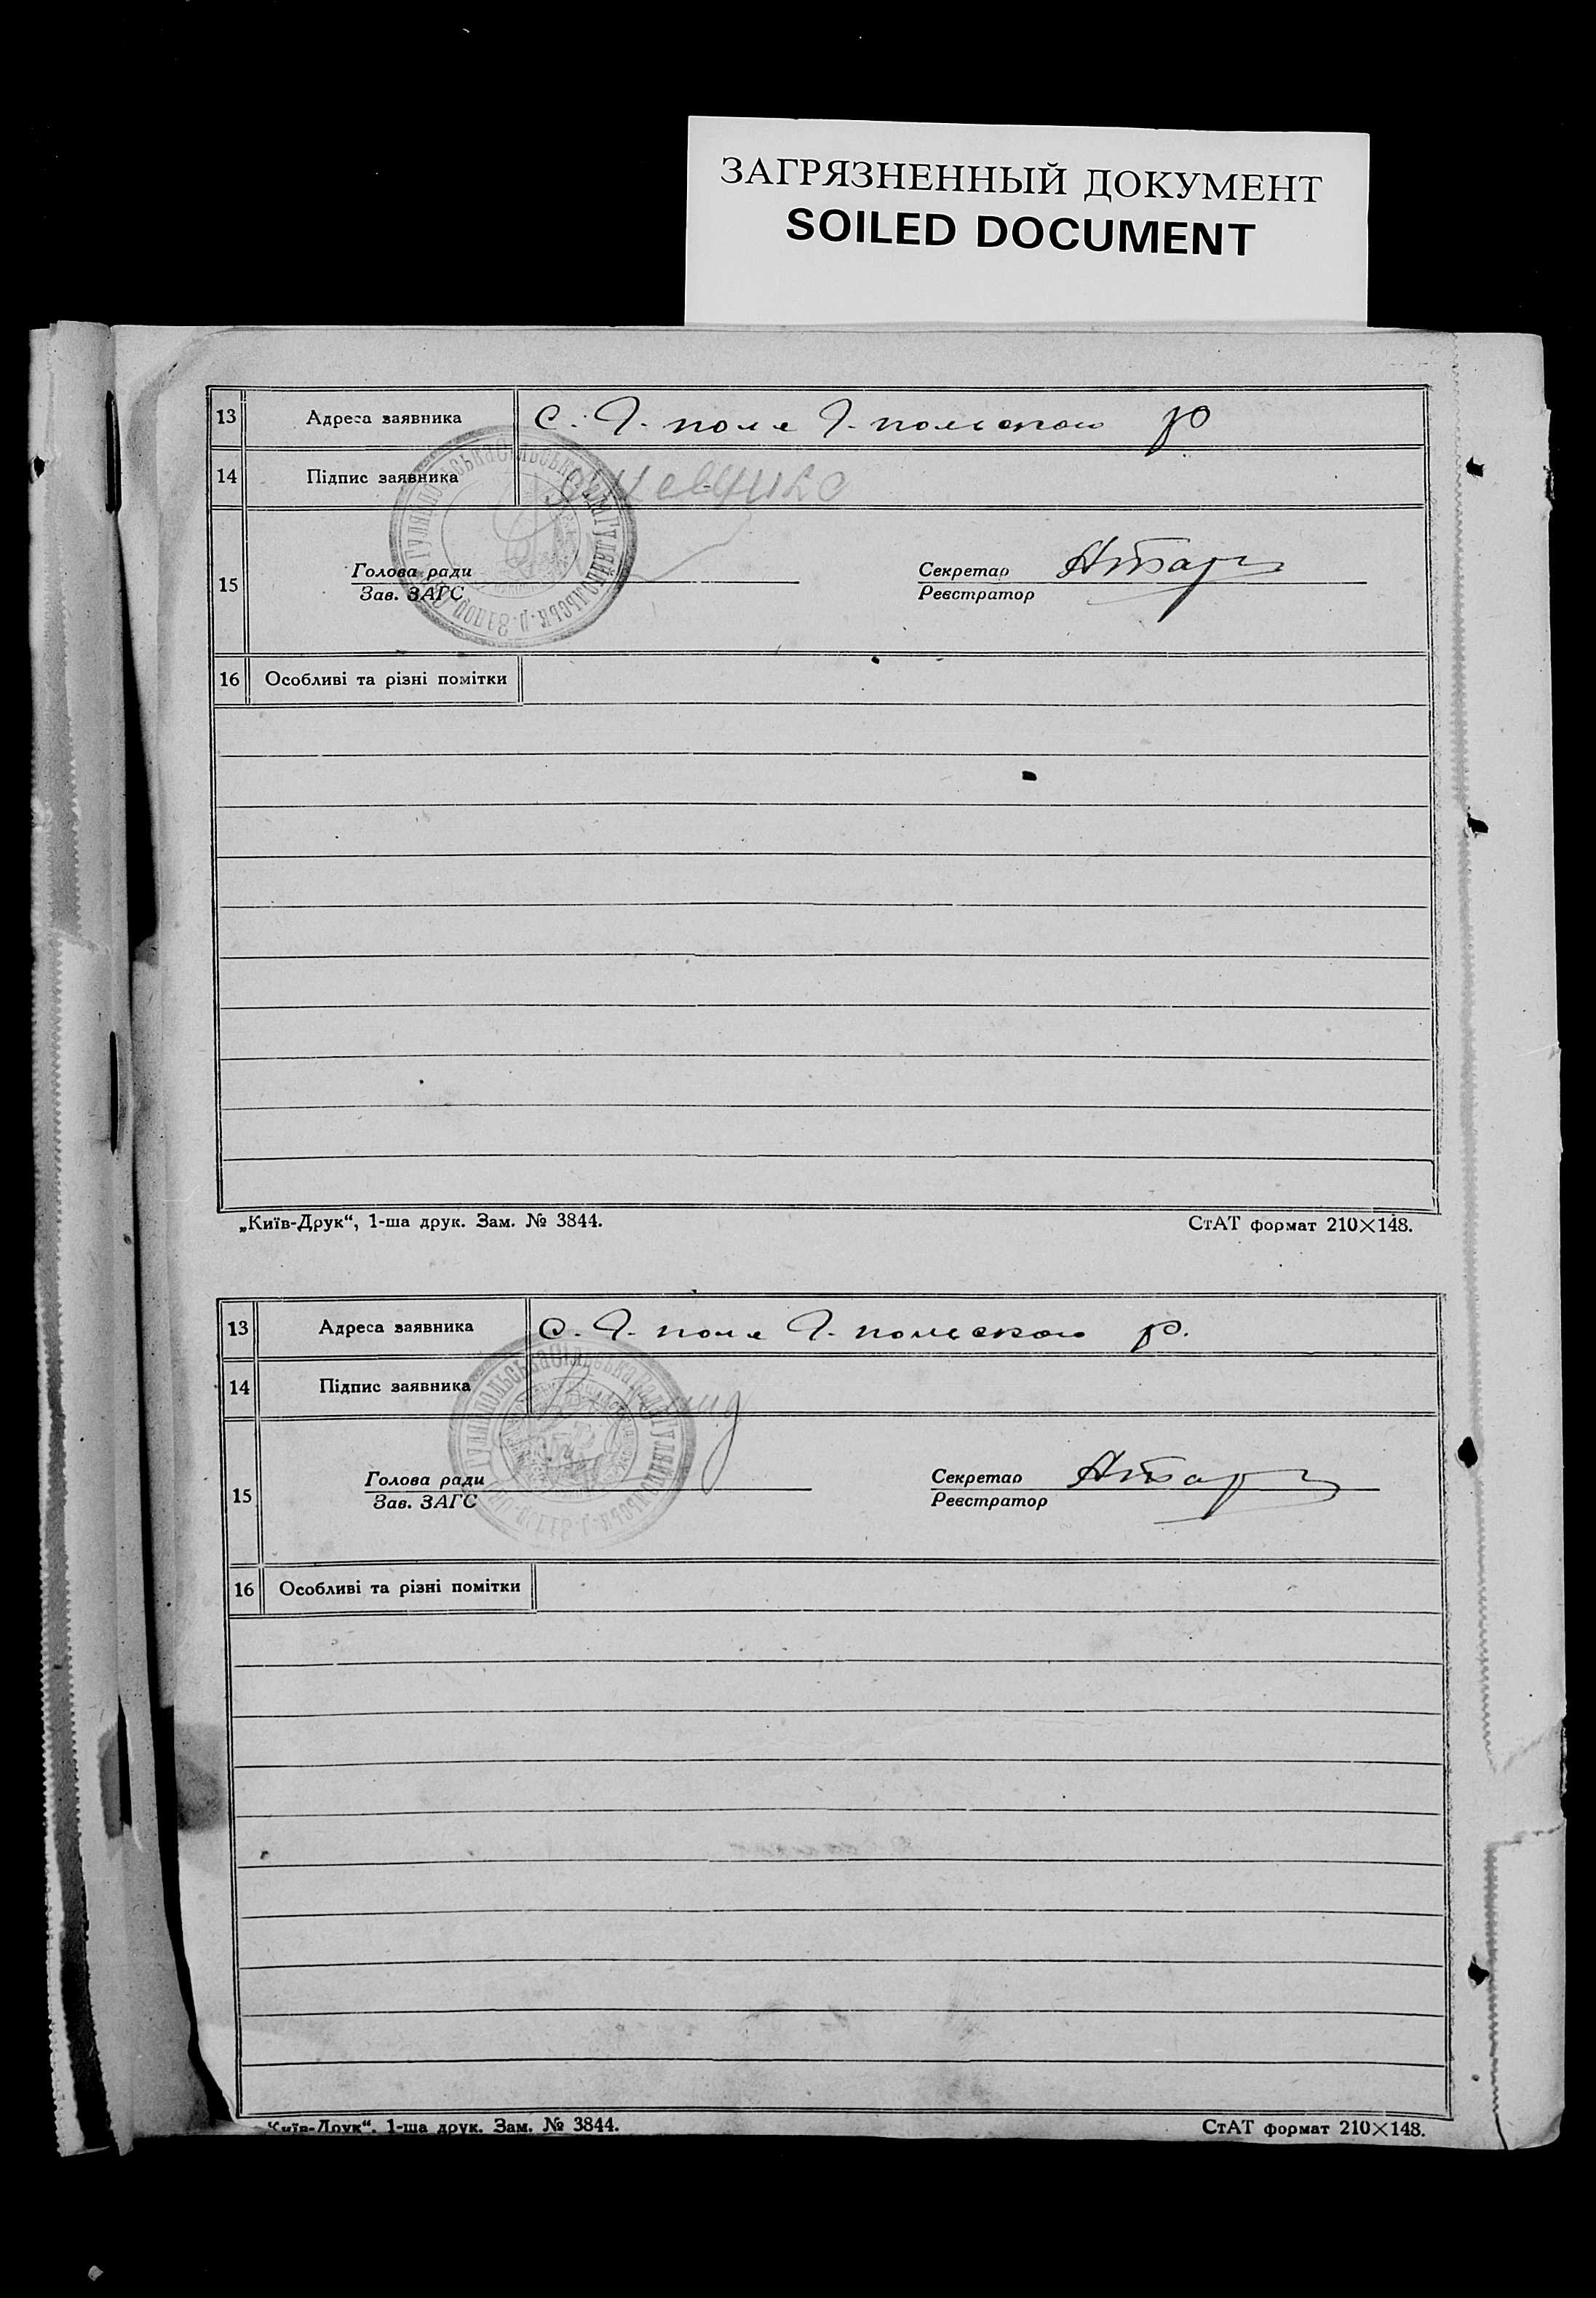 ЗАГРЯЗНЕННЫЙ ДОКУМЕНТ
SOILED DOCUMENT
13 Адреса заявника с. Г. поле Г. польского р
14 Підпис заявника
Гуляйпольська сільська рада Гуляйпольськ. р. Запор.
15 Голова ради Секретар
Зав. ЗАГС Реєстратор
16 Особливі та різні помітки
„Київ-Друк“, 1-ша друк. Зам. № 3844. СтАТ формат 210×148.
13 Адреса заявника с. Г. поле Г. польского р.
14 Підпис заявника
Гуляйпольська сільська рада Гуляйпольськ. р.
15 Голова ради Секретар
Зав. ЗАГС Реєстратор
16 Особливі та різні помітки
Київ-Друк“, 1-ша друк. Зам. № 3844. СтАТ формат 210×148.